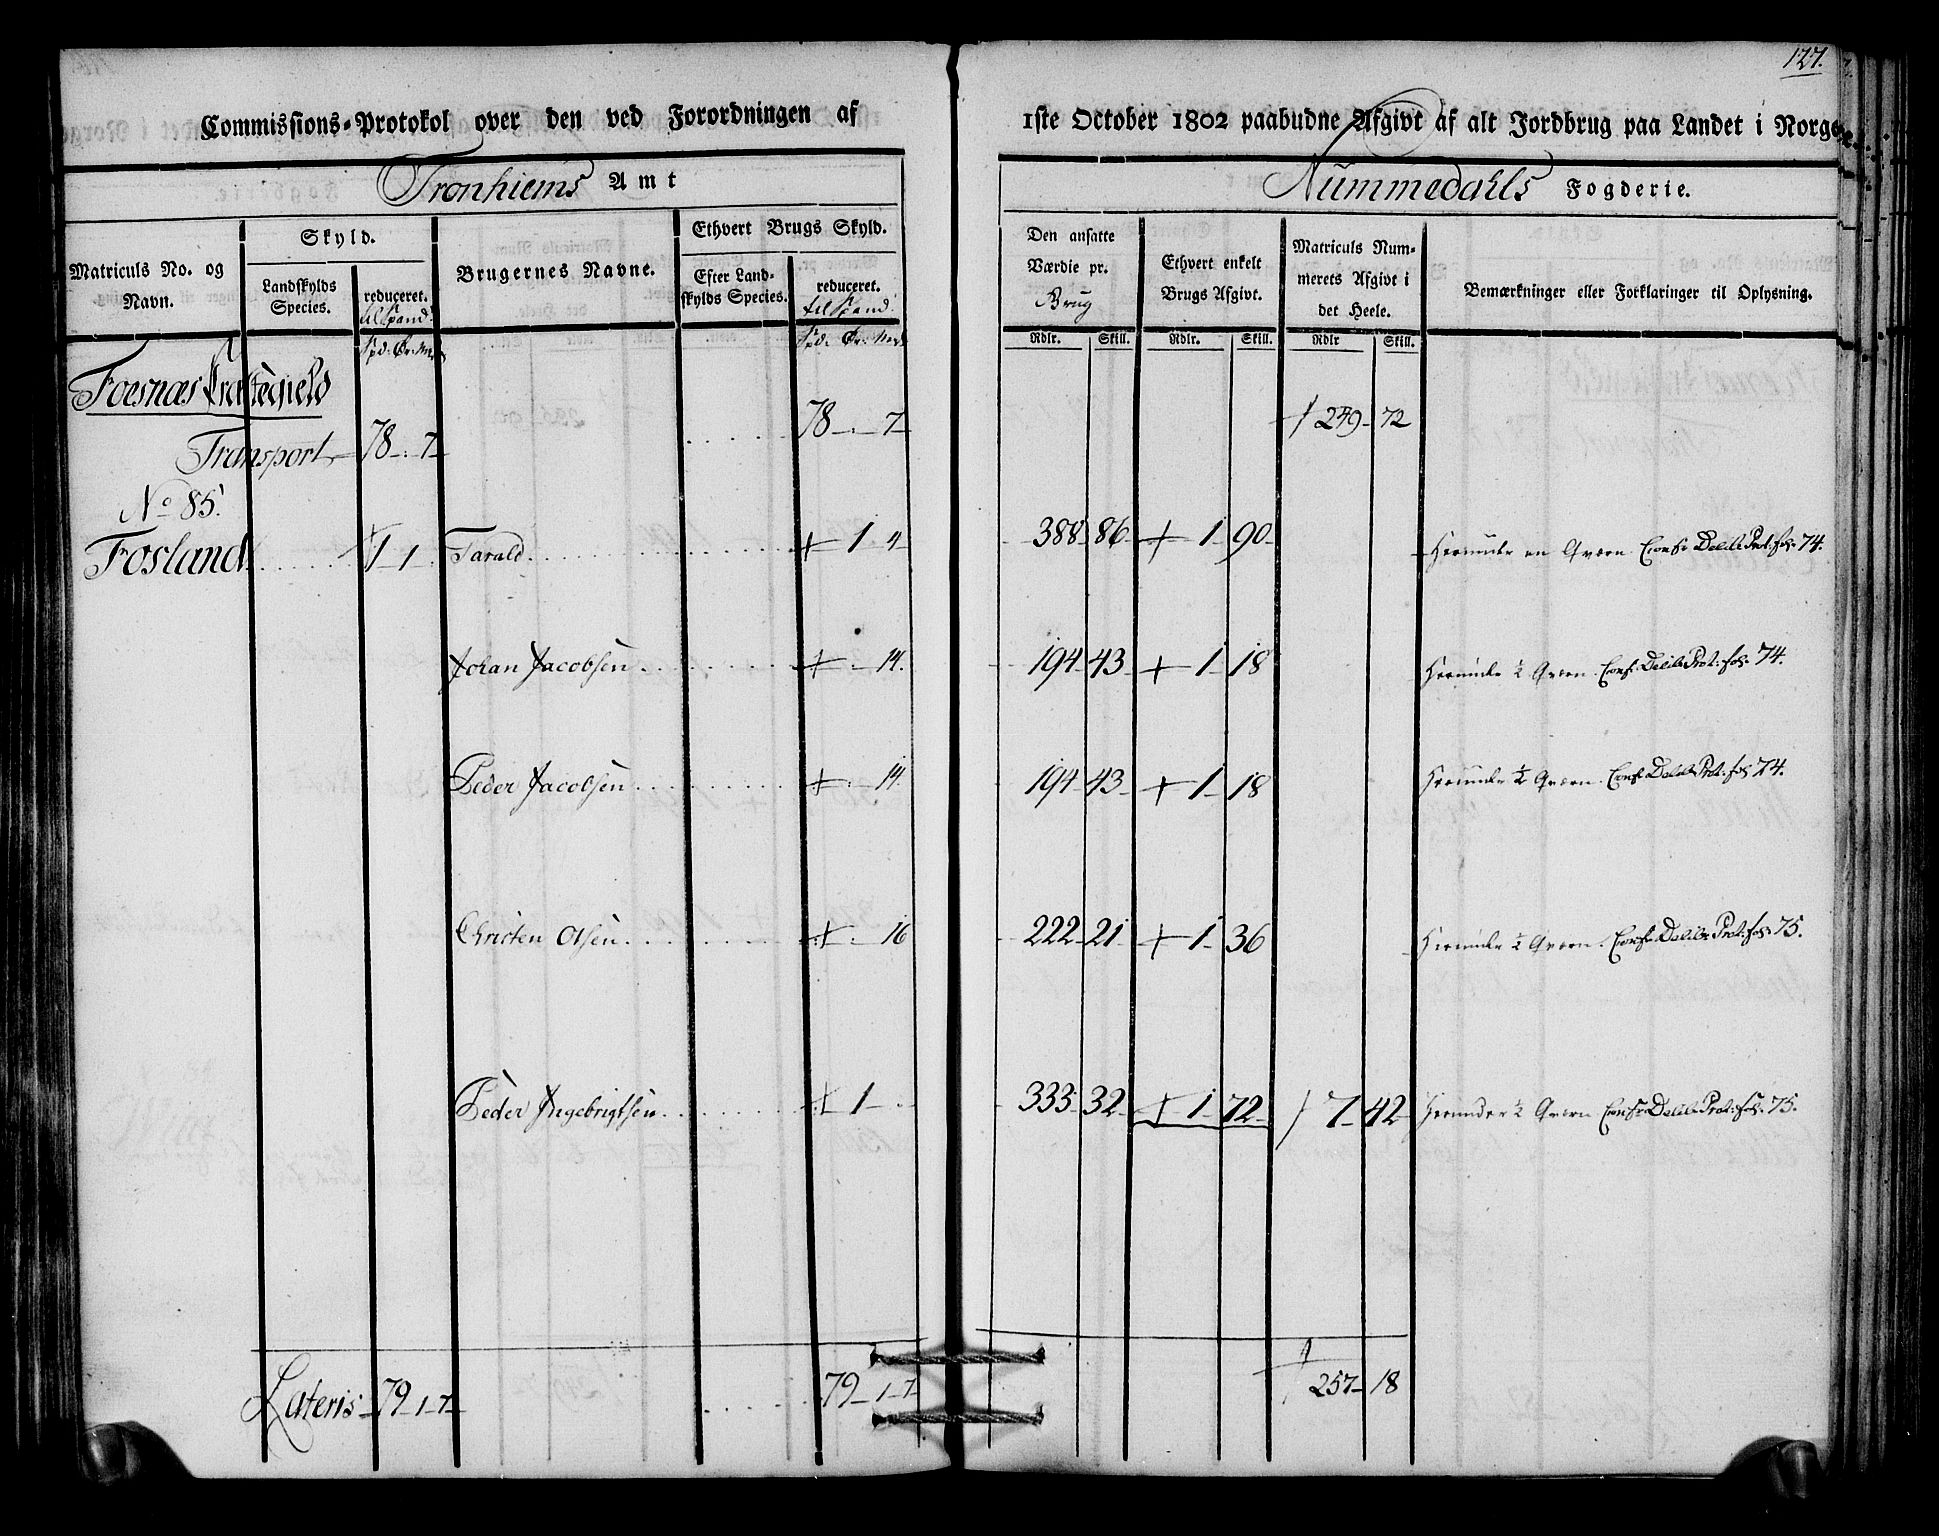 127.
Commissions-Protokol over den ved Forordningen af 1ste October 1802 paabudne Afgivt af alt Jordbrug paa Landet i Norge
Tronhiems Amt
Nummedahls Fogderie.
Matriculs No. og Navn.
Skyld.
Landskylds Species.
reduceret. til Spand.
Brugernes Navne.
Ethvert Brugs Skyld.
Efter Landskylds Species.
reduceret. til Spand.
Den ansatte Værdie pr. Brug
Ethvert enkelt Brugs Afgivt.
Matriculs Nummerets Afgivt i det Heele.
Bemærkninger eller Forklaringer til Oplysning.
Spd: Ør: Mrk
Spd: Ør: Mrk
Rdlr. Skill. Rdlr. Skill. Rdlr Skill.
Foesnæs Præstegield
Transport 78 - . 7 78 - . 7 249 - 72
No 85.
Fosland 1 1 Tarald 1 4 388 86 1 90 Herunder en Qværn Confr Delib: Prot: fol: 74.
Johan Jacobsen . - 14. 194 43 1 18 Herunder ½ Qværn. Confr: Delib: Prot: fol: 74.
Peder Jacobsen . - 14. 194 43 1 18 Herunder ½ Qværn. Confr Delib: Prot: fol: 74.
Christen Olsen . - 16 222 21 1 36 Herunder ½ Qværn. Confr: Delib: Prot: fol: 75.
Peder Ingebrigtsen 1 - . 333 32 1 72 7 42 Herunder ½ Qværn Confr Delib: Prot: fol: 75.
Lateris 79 - 1 - 7 79 - 1 - 7 257 - 18